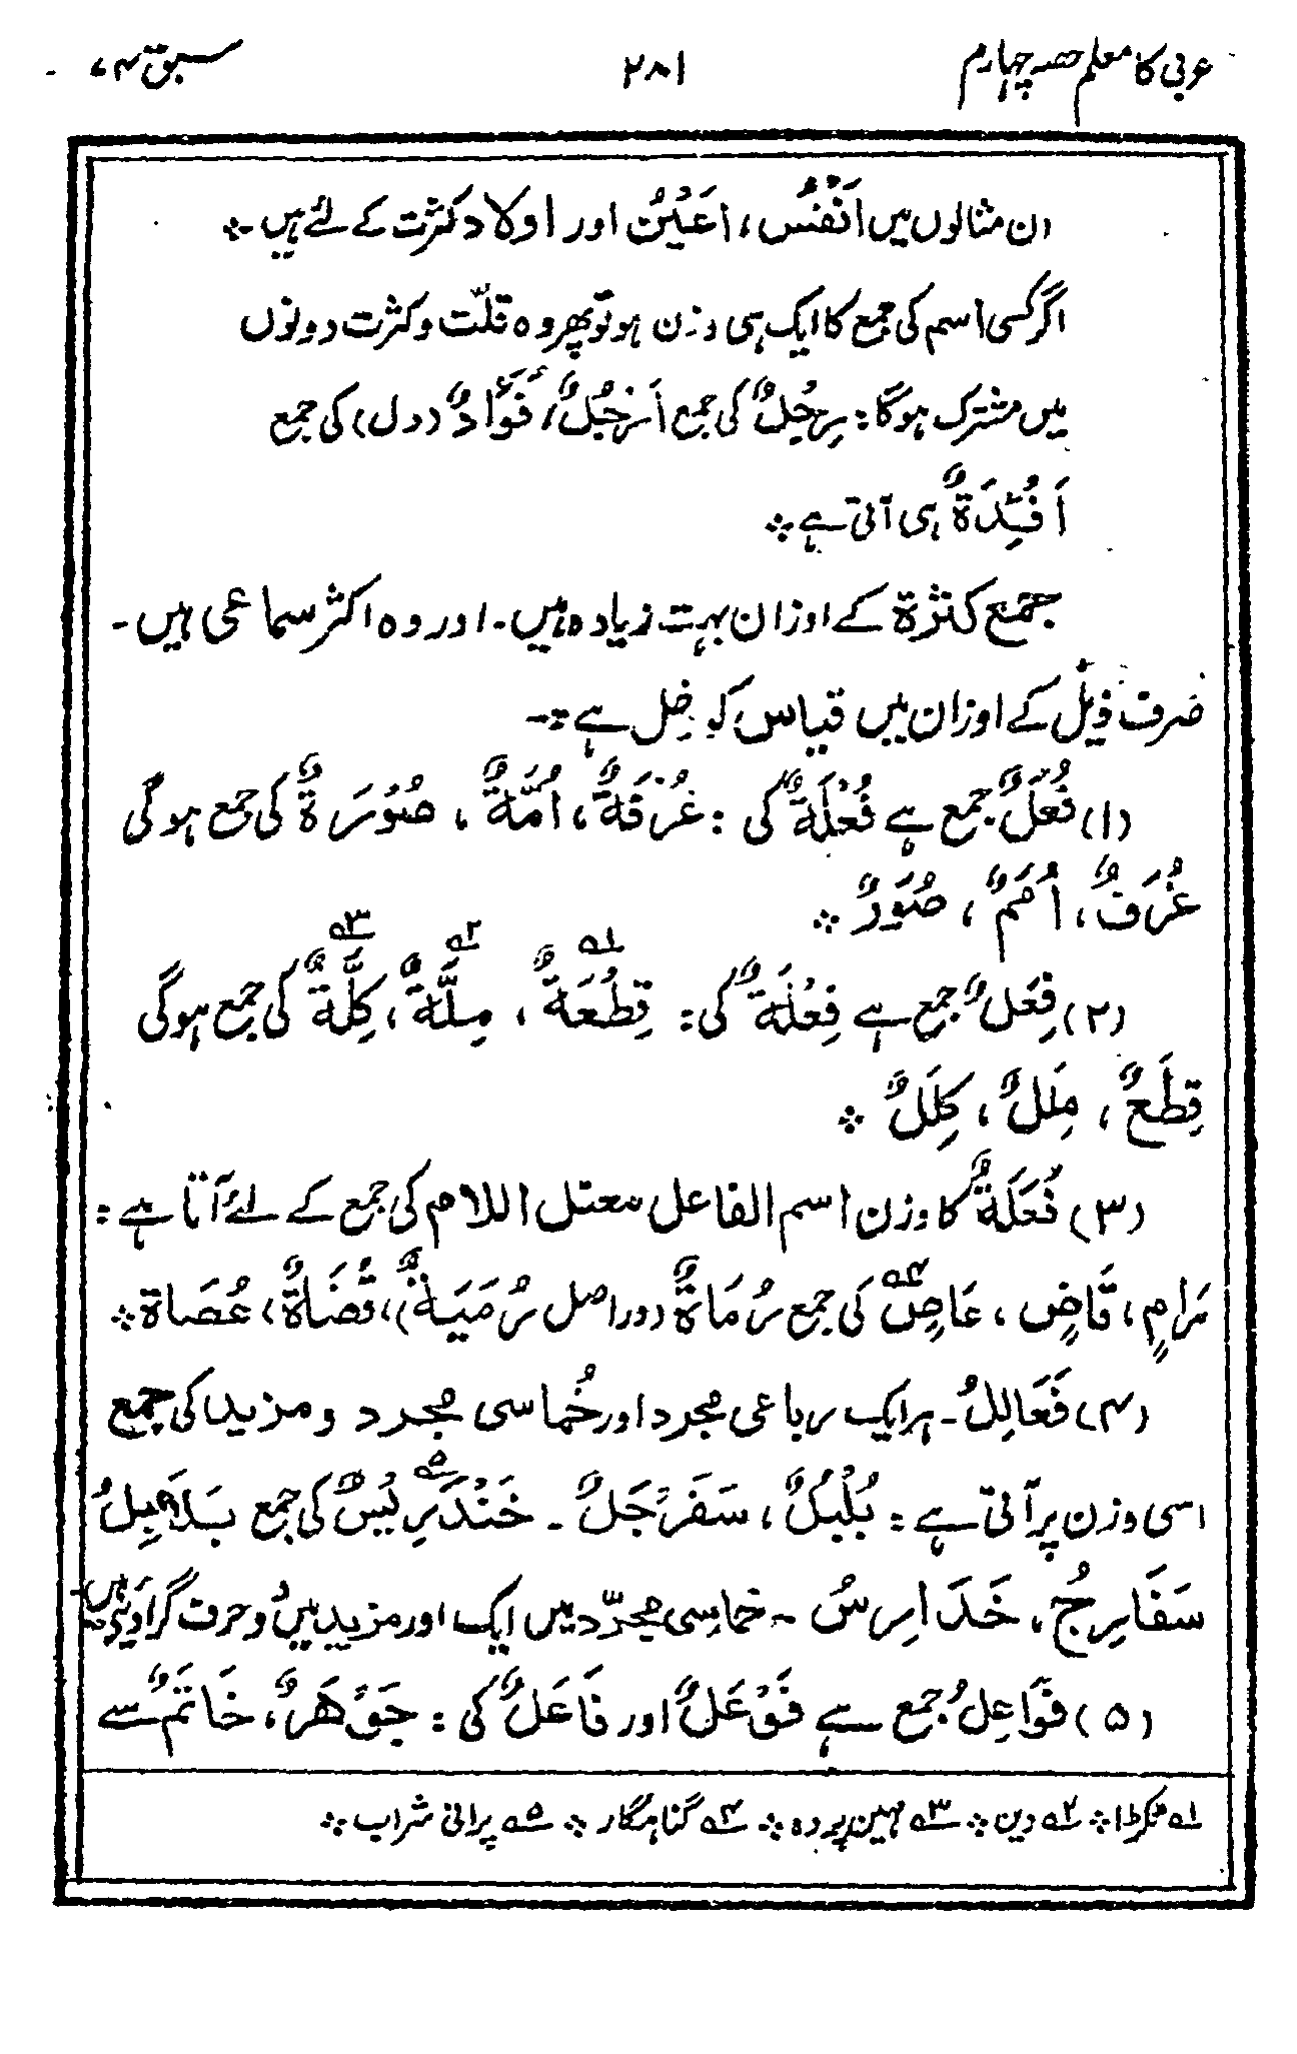 عربی کا معلم حصہ چہارم
۲۸۱
سبق ۷۴
ان مثالوں میں اَنْفُسٌ، اَعْیُنٌ اور اولاد کثرت کے لئے ہیں ۔
اگر کسی اسم کی جمع کا ایک ہی وزن ہو تو پھر وہ قلّت و کثرت دونوں
میں مشترک ہوگا : رِجْلٌ کی جمع اَرْجُلٌ، فُؤَادٌ (دل) کی جمع
اَفْئِدَةٌ ہی آتی ہے
جمع کثرة کے اوزان بہت زیادہ ہیں۔ اور وہ اکثر سماعی ہیں۔
صرف ذیل کے اوزان میں قیاس کو دخل ہے :-
(۱) فُعَلٌ جمع ہے فُعْلَةٌ کی : غُرْفَةٌ، اُمَّةٌ، صُوْرَةٌ کی جمع ہوگی
غُرَفٌ، اُمَمٌ، صُوَرٌ
(۲) فِعَلٌ جمع ہے فِعْلَةٌ کی : قِطْعَةٌ ۱، مِلَّةٌ ۲، کِلَّةٌ ۳ کی جمع ہوگی
قِطَعٌ، مِلَلٌ، کِلَلٌ
(۳) فُعَلَةٌ کا وزن اسم الفاعل معتل اللام کی جمع کے لئے آتا ہے :
رَامٍ، قَاضٍ، عَاصٍ ۴ کی جمع رُمَاةٌ (دراصل رُمَیَةٌ)، قُضَاةٌ، عُصَاة
(۴) فَعَالِلُ۔ ہر ایک رباعی مجرد اور خُماسی مجرد و مزید کی جمع
اسی وزن پر آتی ہے : بُلْبُلٌ، سَفَرْجَلٌ ۔ خَنْدَرِیْسٌ ۵ کی جمع بَلَابِلُ
سَفَارِجُ، خَدَارِسُ ۔ خماسی مجرّد میں ایک اور مزید میں دو حرف گرا دیئے ہیں
(۵) فَوَاعِلُ جمع ہے فَوْعَلٌ اور فَاعَلٌ کی : جَوْهَرٌ، خَاتَمٌ سے
۱ ٹکڑا ۲ دین ۳ مہین پردہ ۴ گناہگار ۵ پرانی شراب